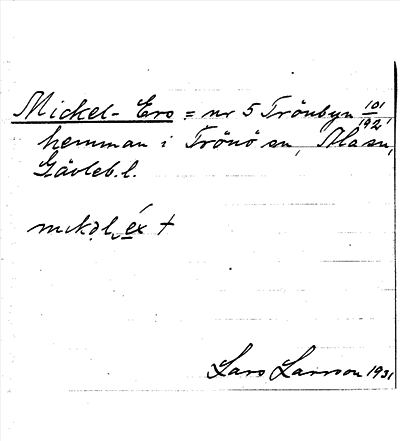 Mickel-Ers = nr 5 Trönbyn 101/192,
hemman i Trönö sn, Ala sn,
Gävleb. l.
Lars Larsson 1931